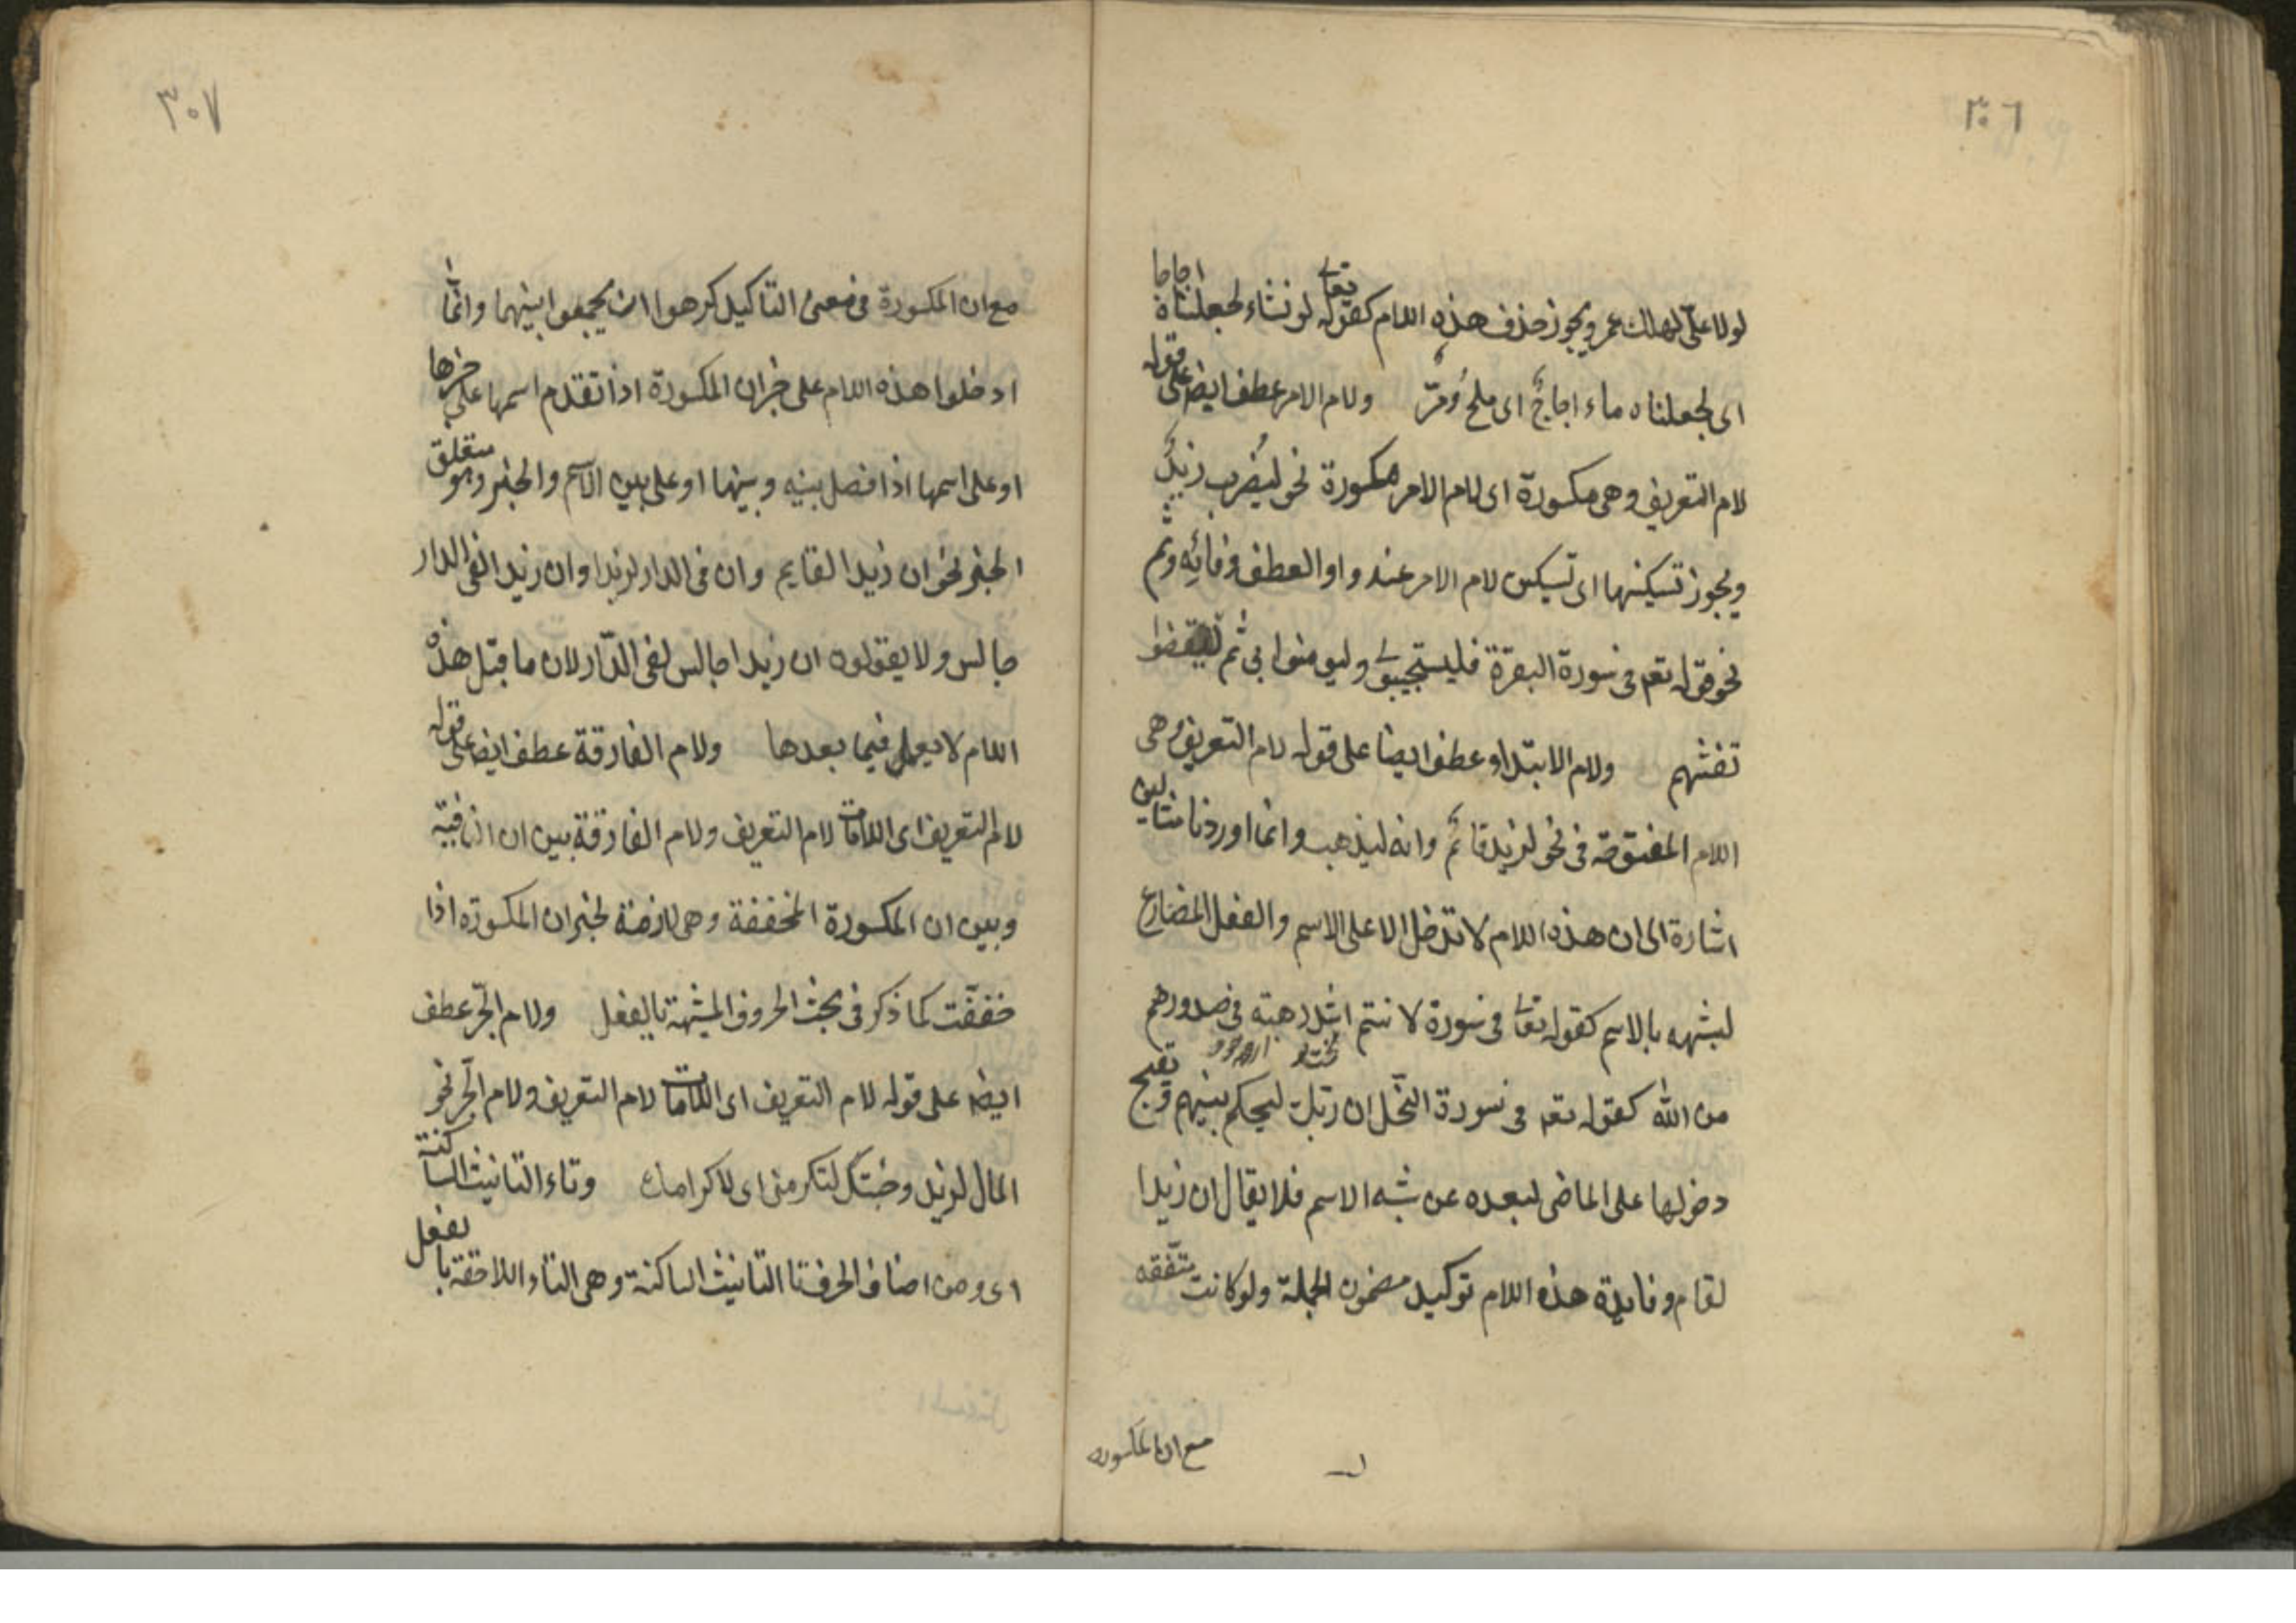 ٣٠٦
لولا علىّ لهلك عمر ويجوز حذف هذه اللام كقوله تعا لو نشاء لجعلناه اجاجا
اى لجعلناه ماء اجاجٌ اى ملحٌ ومرّ ولام الامر عطف ايض على قوله
لام التعريف وهى مكسورة اى لام الامر مكسورة نحو ليضرب زيدٌ
ويجوز تسكينها اى تسكين لام الامر عند واو العطف وفائه وثم
نحو قوله تعه فى سورة البقرة فليستجيبوا لى وليومنوا بى ثم ليقضوا
تفثهم ولام الابتداء عطف ايضا على قوله لام التعريف وهى
اللام المفتوحة فى نحو لزيد قائمٌ وانه ليذهب وانما اوردنا مثالين
اشارة الى ان هذه اللام لا تدخل الا على الاسم والفعل المضارع
لشبهه بالاسم كقوله تعا فى سورة لانتم اشد رهبة فى صدورهم
من الله كقوله تعه فى سورة النّحل ان ربّك ليحكم بينهم وقبح
دخولها على الماضى لبعده عن شبه الاسم فلا يقال ان زيدا
لقام وفايدة هذه اللام توكيد مضمون الجملة ولو كانت متّفقه
مع ان المكسوره
٣٠٧
مع ان المكسورة فى معنى التاكيد كرهوا ان يجمعوا بينهما وانّما
ادخلوا هذه اللام على خبر ان المكسورة اذا تقدم اسمها على خبرها
او على اسمها اذا فصل بينه وبينها او على بين الاسم والخبر وهو متعلق
الخبر نحو ان زيدا لقايم وان فى الدار لزيدا وان زيدا لفى الدار
جالس ولا يقولون ان زيدا جالس لفى الدّار لان ما قبل هذه
اللام لا يعمل فيما بعدها ولام الفارقة عطف ايض على قوله
لام التعريف اى اللامات لام التعريف ولام الفارقة بين ان النافية
وبين ان المكسورة المخففة وهى لازمة لخبر ان المكسورة اذا
خففت كما ذكر فى بحث الحروف المشبهة بالفعل ولام الجرّ عطف
ايضه على قوله لام التعريف اى اللامات لام التعريف ولام الجّر نحو
المال لزيد وجئتك لتكرمنى اى لاكرامك وتاء التانيث الساكنة
اى ومن اصناف الحرف تا التانيث الساكنة وهى التاء اللاحقة بالفعل